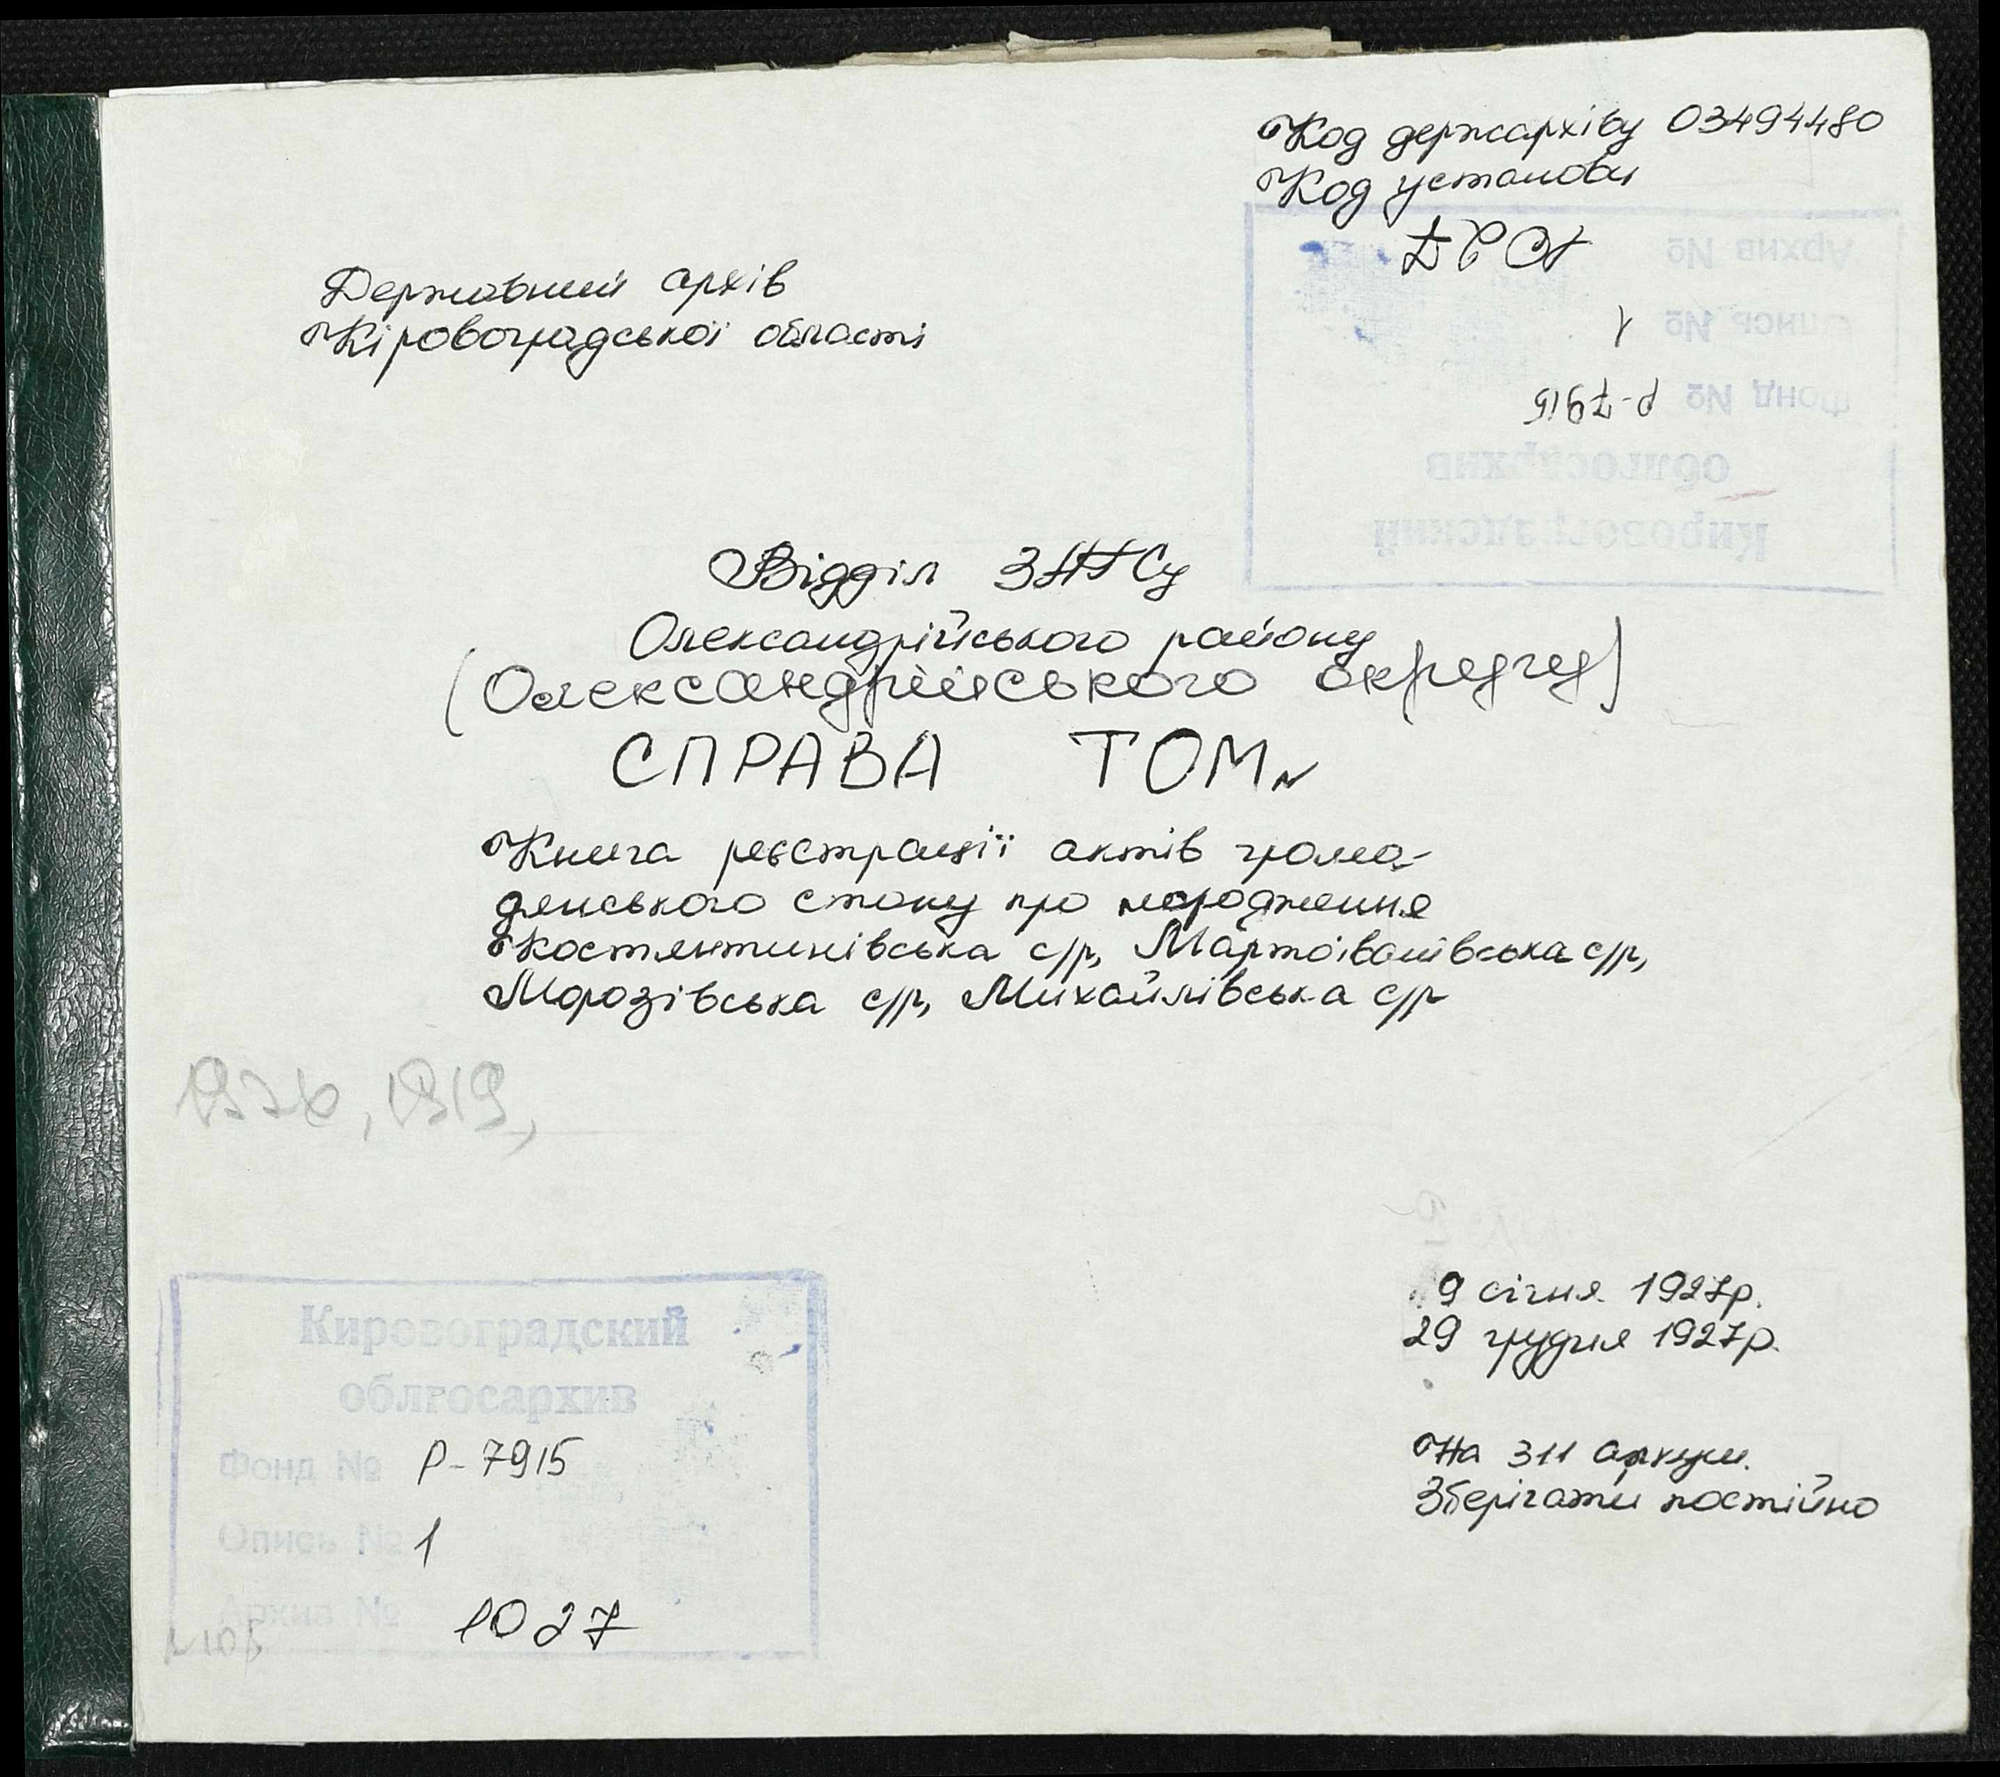 Код держархіву 03494480
Код установи
Державний архів
Кіровоградської області
Архив № 1027
Опись № 1
Фонд № Р-7915
облгосархив
Кировоградский
Відділ ЗАГСу
Олександрійського району
(Олександрійського округу)
СПРАВА ТОМ
Книга реєстрації актів грома-
дянського стану про народження
Костянтинівська с/р, Мартоіванівська с/р,
Морозівська с/р, Михайлівська с/р
1919,
9 січня 1927р.
29 грудня 1927р.
На 311 аркуш.
Зберігати постійно
Кировоградский
облгосархив
Фонд № Р-7915
Опись № 1
Архив № 1027